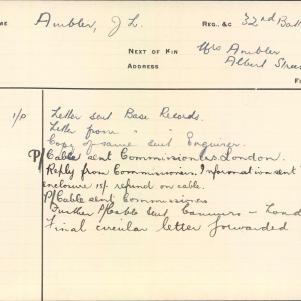 ME Ambler, J L. REG., &C 32nd Batt
NEXT OF KIN Mrs Ambler
ADDRESS Albert Stree
F
1/P Letter sent Base Records.
Letter from " "
Copy of same sent Enquirer.
P/Cable sent Commissioners London.
Reply from Commissioners. Information sent
enclosure 15/- refund on cable.
P/Cable sent Commissioners
Further P/Cable sent - Lond
Final circular letter forwarded